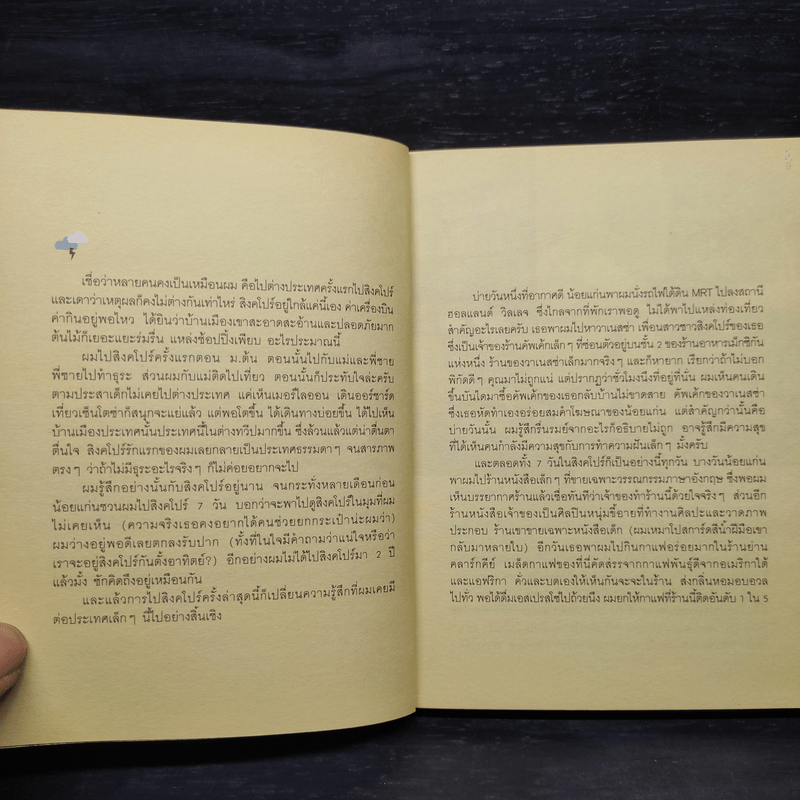 เชื่อว่าหลายคนคงเป็นเหมือนผม คือไปต่างประเทศครั้งแรกไปสิงคโปร์
และเดาว่าเหตุผลก็คงไม่ต่างกันเท่าไหร่ สิงคโปร์อยู่ใกล้แค่นี้เอง ค่าเครื่องบิน
ค่ากินอยู่พอไหว ได้ยินว่าบ้านเมืองเขาสะอาดสะอ้านและปลอดภัยมาก
ต้นไม้ก็เยอะแยะร่มรื่น แหล่งช้อปปิ้งเพียบ อะไรประมาณนี้
ผมไปสิงคโปร์ครั้งแรกตอน ม.ต้น ตอนนั้นไปกับแม่และพี่ชาย
พี่ชายไปทำธุระ ส่วนผมกับแม่ติดไปเที่ยว ตอนนั้นก็ประทับใจล่ะครับ
ตามประสาเด็กไม่เคยไปต่างประเทศ แค่เห็นเมอร์ไลออน เดินออร์ชาร์ด
เที่ยวเซ็นโตซ่าก็สนุกจะแย่แล้ว แต่พอโตขึ้น ได้เดินทางบ่อยขึ้น ได้ไปเห็น
บ้านเมืองประเทศนั้นประเทศนี้ในต่างทวีปมากขึ้น ซึ่งล้วนแล้วแต่น่าตื่นตา
ตื่นใจ สิงคโปร์รักแรกของผมเลยกลายเป็นประเทศธรรมดาๆ จนสารภาพ
ตรงๆ ว่าถ้าไม่มีธุระอะไรจริงๆ ก็ไม่ค่อยอยากจะไป
ผมรู้สึกอย่างนั้นกับสิงคโปร์อยู่นาน จนกระทั่งหลายเดือนก่อน
น้อยแก่นชวนผมไปสิงคโปร์ 7 วัน บอกว่าจะพาไปดูสิงคโปร์ในมุมที่ผม
ไม่เคยเห็น (ความจริงเธอคงอยากได้คนช่วยยกกระเป๋าน่ะผมว่า)
ผมว่างอยู่พอดีเลยตกลงรับปาก (ทั้งที่ในใจมีคำถามว่าแน่ใจหรือว่า
เราจะอยู่สิงคโปร์กันตั้งอาทิตย์?) อีกอย่างผมไม่ได้ไปสิงคโปร์มา 2 ปี
แล้วมั้ง ชักคิดถึงอยู่เหมือนกัน
และแล้วการไปสิงคโปร์ครั้งล่าสุดนี้ก็เปลี่ยนความรู้สึกที่ผมเคยมี
ต่อประเทศเล็กๆ นี้ไปอย่างสิ้นเชิง
บ่ายวันหนึ่งที่อากาศดี น้อยแก่นพาผมนั่งรถไฟใต้ดิน MRT ไปลงสถานี
ฮอลแลนด์ วิลเลจ ซึ่งไกลจากที่พักเราพอดู ไม่ได้พาไปแหล่งท่องเที่ยว
สำคัญอะไรเลยครับ เธอพาผมไปหาวาเนสซ่า เพื่อนสาวชาวสิงคโปร์ของเธอ
ซึ่งเป็นเจ้าของร้านคัพเค้กเล็กๆ ที่ซ่อนตัวอยู่บนชั้น 2 ของร้านอาหารเม็กซิกัน
แห่งหนึ่ง ร้านของวาเนสซ่าเล็กมากจริงๆ และก็หายาก เรียกว่าถ้าไม่บอก
พิกัดดีๆ คุณมาไม่ถูกแน่ แต่ปรากฏว่าชั่วโมงนึงที่อยู่ที่นั่น ผมเห็นคนเดิน
ขึ้นบันไดมาซื้อคัพเค้กของเธอกลับบ้านไม่ขาดสาย คัพเค้กของวาเนสซ่า
ซึ่งเธอหัดทำเองอร่อยสมคำโฆษณาของน้อยแก่น แต่สำคัญกว่านั้นคือ
บ่ายวันนั้น ผมรู้สึกรื่นรมย์จากอะไรก็อธิบายไม่ถูก อาจรู้สึกมีความสุข
ที่ได้เห็นคนกำลังมีความสุขกับการทำความฝันเล็กๆ มั้งครับ
และตลอดทั้ง 7 วันในสิงคโปร์ก็เป็นอย่างนี้ทุกวัน บางวันน้อยแก่น
พาผมไปร้านหนังสือเล็กๆ ที่ขายเฉพาะวรรณกรรมภาษาอังกฤษ ซึ่งพอผม
เห็นบรรยากาศร้านแล้วเชื่อทันทีว่าเจ้าของทำร้านนี้ด้วยใจจริงๆ ส่วนอีก
ร้านหนังสือเจ้าของเป็นศิลปินหนุ่มขี้อายที่ทำงานศิลปะและวาดภาพ
ประกอบ ร้านเขาขายเฉพาะหนังสือเด็ก (ผมเหมาโปสการ์ดสีน้ำฝีมือเขา
กลับมาหลายใบ) อีกวันเธอพาผมไปกินกาแฟอร่อยมากในร้านย่าน
คลาร์กคีย์ เมล็ดกาแฟของที่นี่คัดสรรจากกาแฟพันธุ์ดีจากอเมริกาใต้
และแอฟริกา คั่วและบดเองให้เห็นกันจะจะในร้าน ส่งกลิ่นหอมอบอวล
ไปทั่ว พอได้ดื่มเอสเปรสโซ่ไปถ้วยนึง ผมยกให้กาแฟที่ร้านนี้ติดอันดับ 1 ใน 5